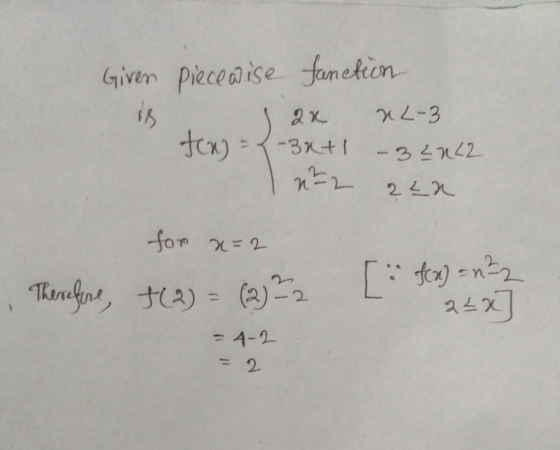 Given piecewise function
is
f(x) = { 2x x < -3
-3x+1 -3 ≤ x < 2
x²-2 2 ≤ x
for x = 2
Therefore, f(2) = (2)²-2 [∵ f(x) = x²-2
2 ≤ x]
= 4-2
= 2